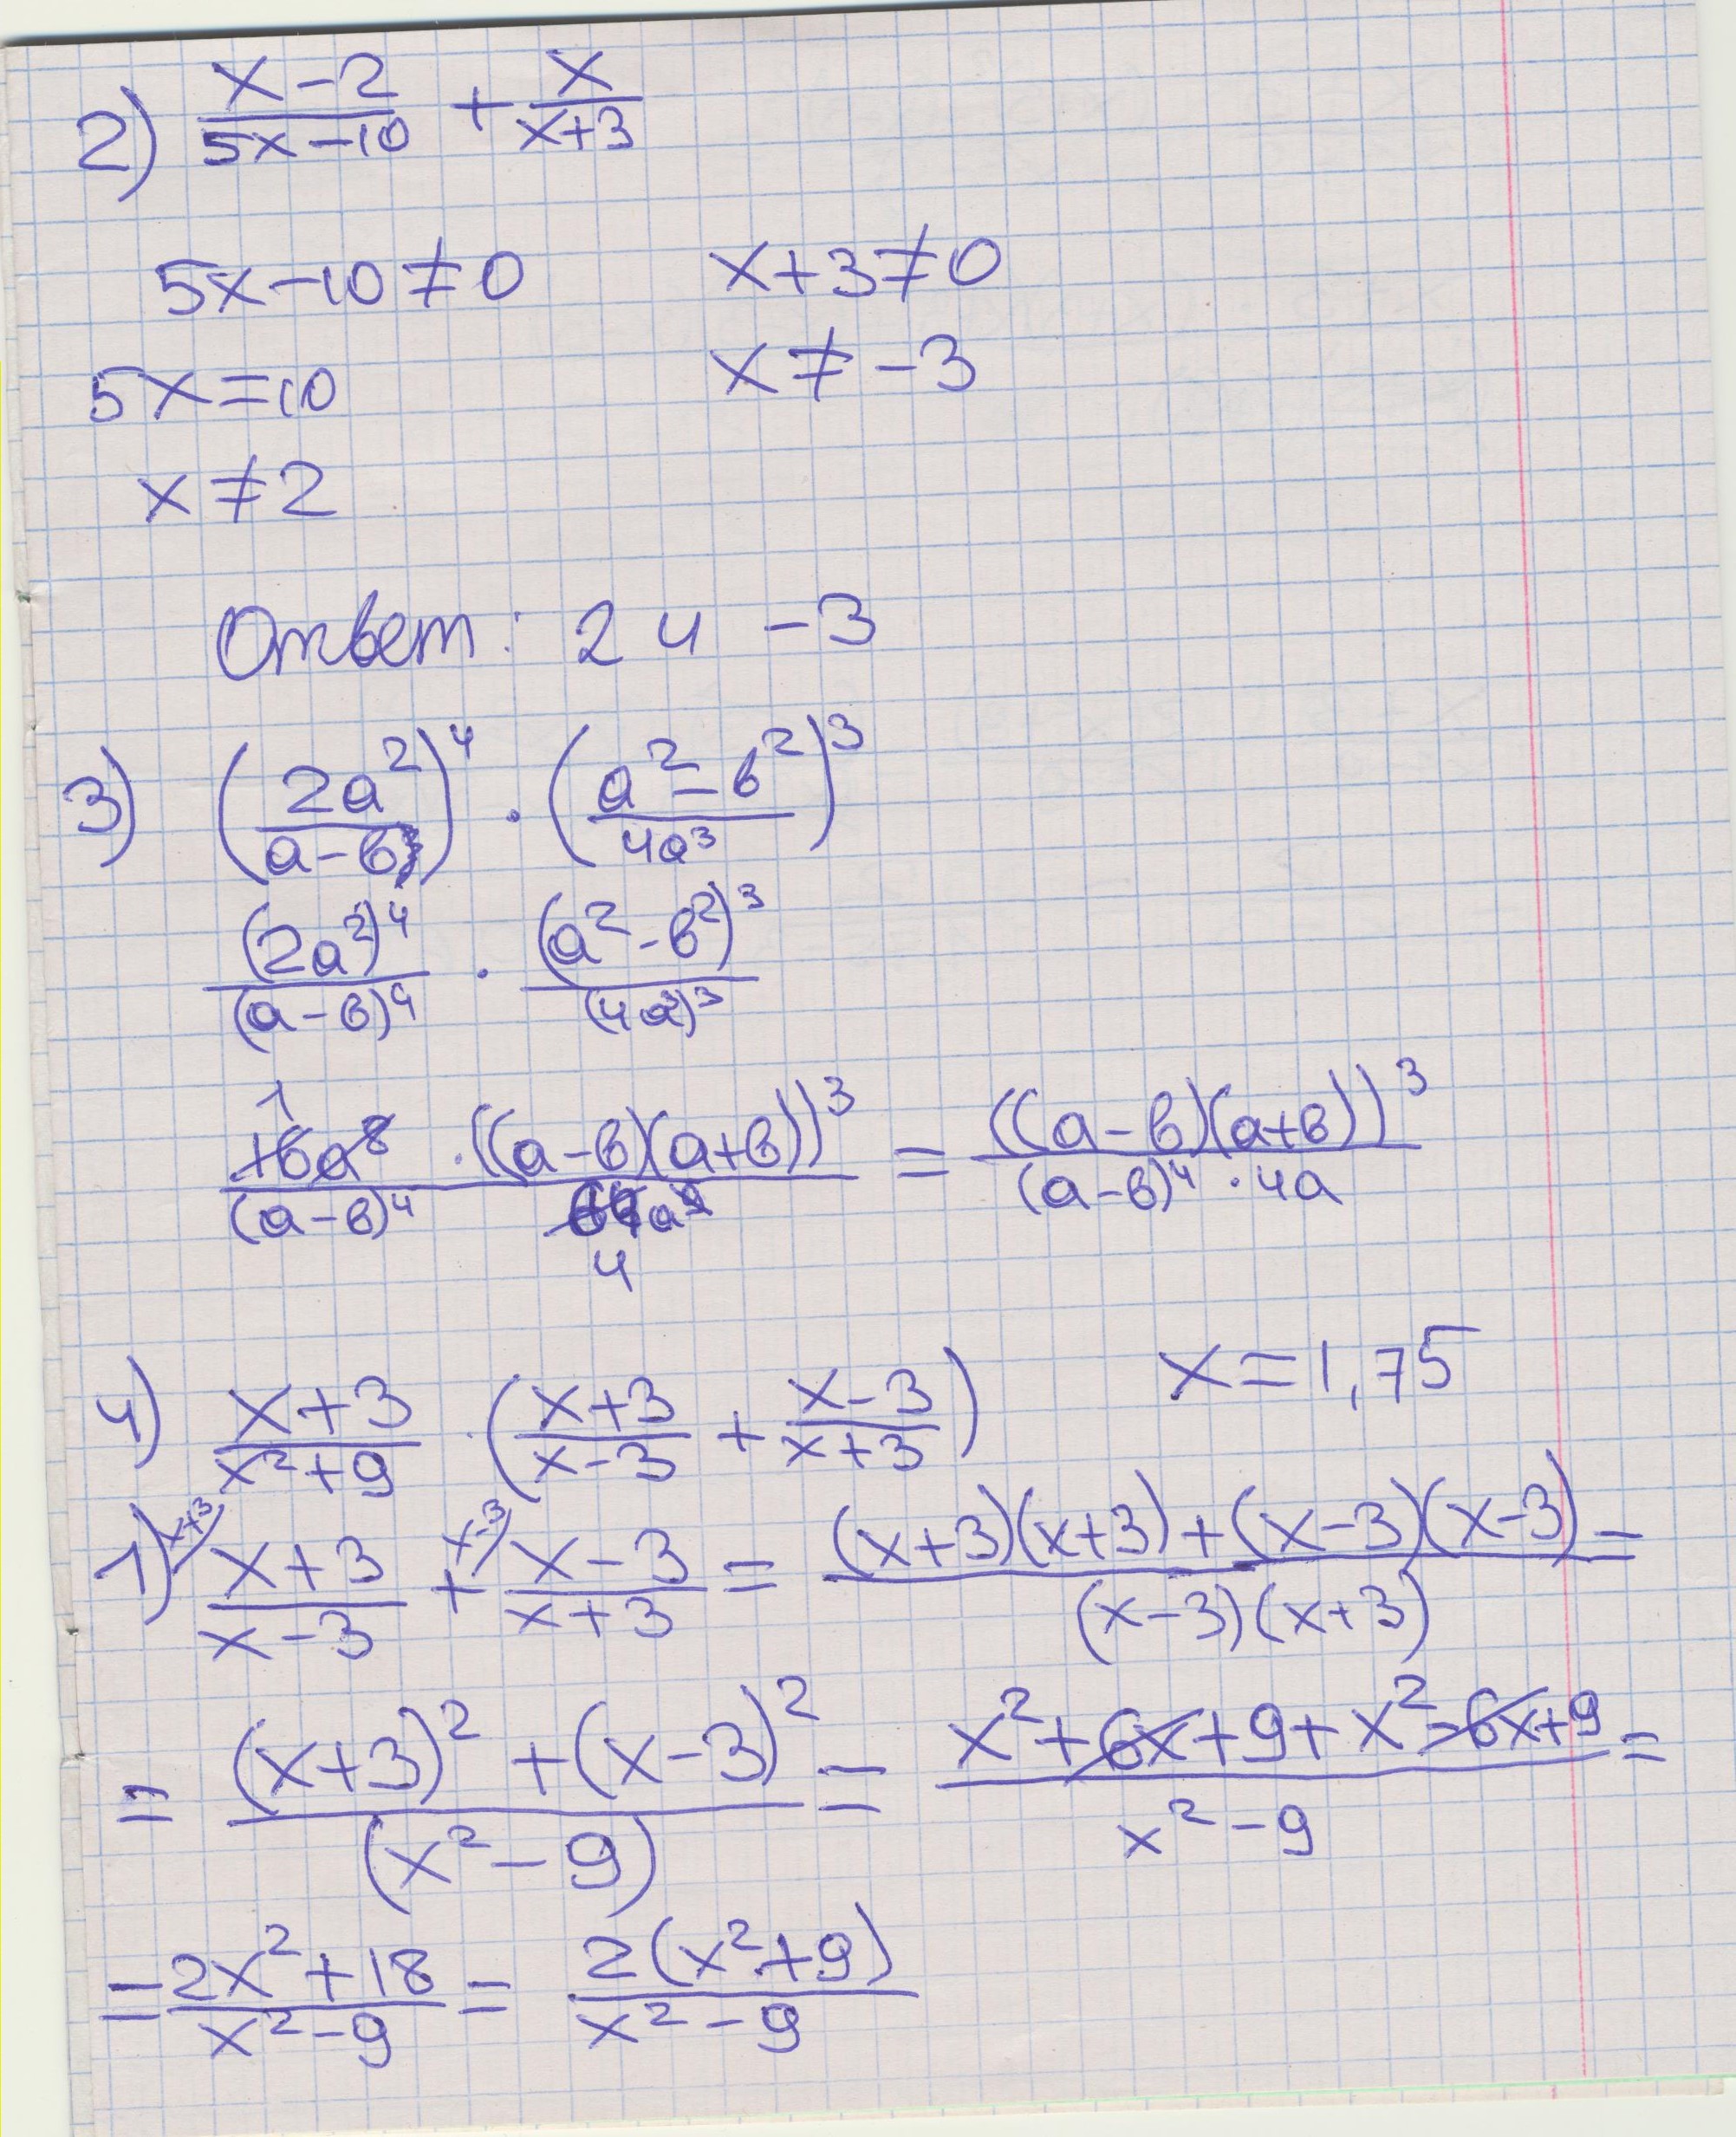 2) (x-2)/(5x-10) + x/(x+3)
5x-10≠0 x+3≠0
5x=10 x≠-3
x≠2
Ответ: 2 и -3
3) (2a²/(a-в))⁴ · ((a²-в²)/4a³)³
(2a²)⁴/(a-в)⁴ · (a²-в²)³/(4a³)³
1
16a⁸/(a-в)⁴ · ((a-в)(a+в))³/64a⁹ = ((a-в)(a+в))³/((a-в)⁴·4a)
4
4) (x+3)/(x²+9) · ((x+3)/(x-3) + (x-3)/(x+3)) x=1,75
1) x+3/ (x+3)/(x-3) + x-3/ (x-3)/(x+3) = ((x+3)(x+3)+(x-3)(x-3))/((x-3)(x+3)) =
= ((x+3)²+(x-3)²)/(x²-9) = (x²+6x+9+x²-6x+9)/(x²-9) =
= (2x²+18)/(x²-9) = 2(x²+9)/(x²-9)